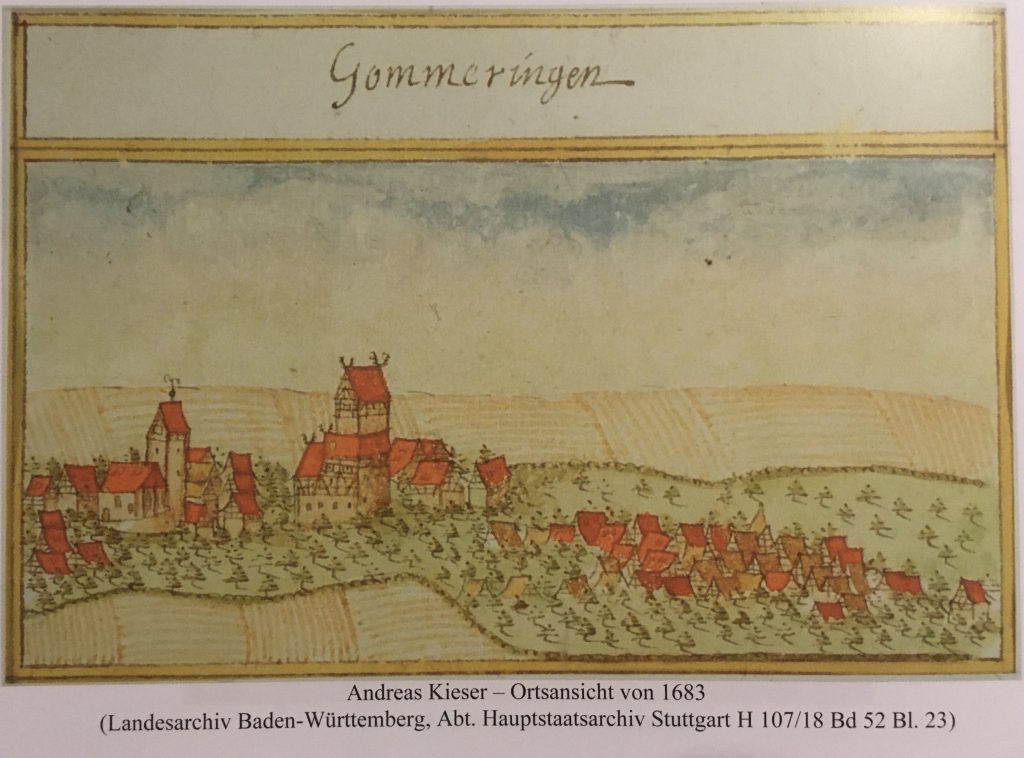 Gommeringen
Andreas Kieser – Ortsansicht von 1683
(Landesarchiv Baden-Württemberg, Abt. Hauptstaatsarchiv Stuttgart H 107/18 Bd 52 Bl. 23)